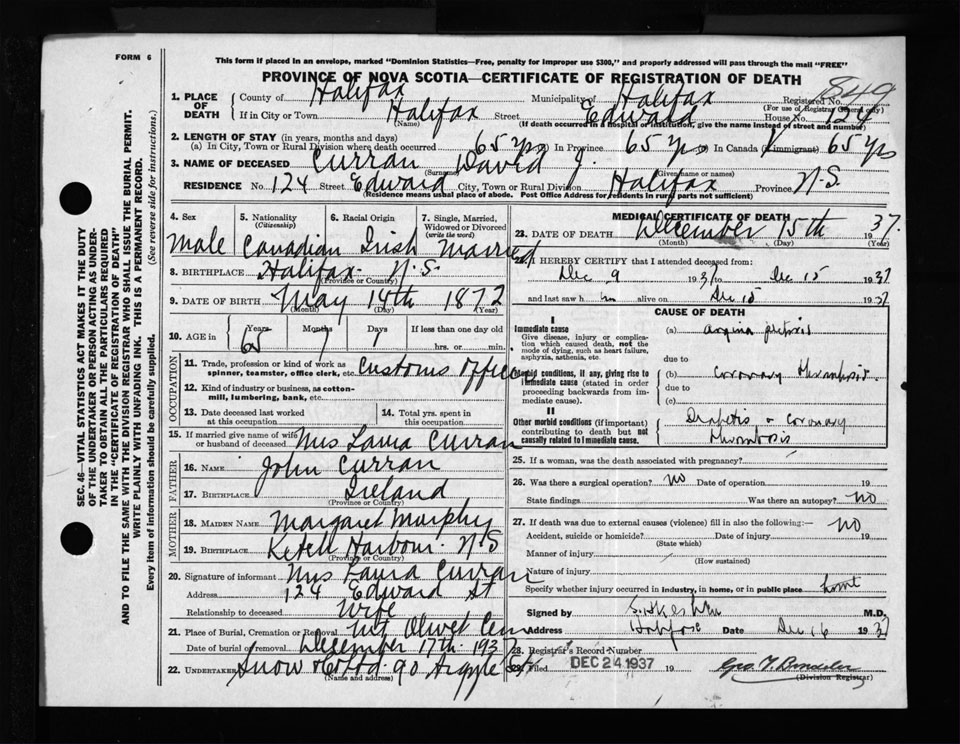 FORM 6
This form if placed in an envelope, marked "Dominion Statistics—Free, penalty for improper use $300," and properly addressed will pass through the mail "FREE"
PROVINCE OF NOVA SCOTIA—CERTIFICATE OF REGISTRATION OF DEATH
849
1. PLACE OF DEATH County of Halifax Municipality of Halifax Registered No. (For use of Registrar General only)
If in City or Town Halifax (Name) Street Edward House No. 124
(If death occurred in a hospital or institution, give the name instead of street and number)
2. LENGTH OF STAY (in years, months and days)
(a) In City, Town or Rural Division where death occurred 65 yrs In Province 65 yrs In Canada (if immigrant) 65 yrs
3. NAME OF DECEASED Curran (Surname) David J. (Given name or names)
RESIDENCE No. 124 Street Edward City, Town or Rural Division Halifax Province N.S.
(Residence means usual place of abode. Post Office Address for residents in rural parts not sufficient)
4. Sex Male
5. Nationality (Citizenship) Canadian
6. Racial Origin Irish
7. Single, Married, Widowed or Divorced (write the word) Married
8. BIRTHPLACE Halifax N.S. (Province or Country)
9. DATE OF BIRTH May 14th 1872
(Month) (Day) (Year)
10. AGE in Years 65 Months 7 Days 1 If less than one day old hrs. or min.
OCCUPATION
11. Trade, profession or kind of work as spinner, teamster, office clerk, etc. Customs Officer
12. Kind of industry or business, as cotton-mill, lumbering, bank, etc.
13. Date deceased last worked at this occupation
14. Total yrs. spent in this occupation
15. If married give name of wife or husband of deceased Mrs Laura Curran
FATHER
16. NAME John Curran
17. BIRTHPLACE Ireland (Province or Country)
MOTHER
18. MAIDEN NAME Margaret Murphy
19. BIRTHPLACE Ketch Harbour N.S (Province or Country)
20. Signature of informant Mrs Laura Curran
Address 124 Edward St
Relationship to deceased Wife
21. Place of Burial, Cremation or Removal Mt Olivet Cem
Date of burial or removal December 17th 1937
22. UNDERTAKER Snow & Co Ltd - 90 Argyle St
(Name and address)
MEDICAL CERTIFICATE OF DEATH
23. DATE OF DEATH December 15th 1937.
(Month) (Day) (Year)
24. I HEREBY CERTIFY that I attended deceased from:
Dec 9 1937 to Dec 15 1937
and last saw him alive on Dec 15 1937
CAUSE OF DEATH
I
Immediate cause
Give disease, injury or complication which caused death, not the mode of dying, such as heart failure, asphyxia, asthenia, etc.
(a) angina pectoris
due to
Morbid conditions, if any, giving rise to immediate cause (stated in order proceeding backwards from immediate cause).
(b) coronary thrombosis
due to
(c)
II
Other morbid conditions (if important) contributing to death but not causally related to immediate cause.
Diabetis & Coronary
thrombosis
25. If a woman, was the death associated with pregnancy?
26. Was there a surgical operation? no Date of operation 19
State findings Was there an autopsy? no
27. If death was due to external causes (violence) fill in also the following:— no
Accident, suicide or homicide? (State which) Date of injury 19
Manner of injury (How sustained)
Nature of injury
Specify whether injury occurred in industry, in home, or in public place home
Signed by M.D.
Address Halifax Date Dec 16 1937
28. Registrar's Record Number
Filed DEC 24 1937 19
(Division Registrar)
SEC. 46—VITAL STATISTICS ACT MAKES IT THE DUTY OF THE UNDERTAKER OR PERSON ACTING AS UNDERTAKER TO OBTAIN ALL THE PARTICULARS REQUIRED IN THE "CERTIFICATE OF REGISTRATION OF DEATH"
AND TO FILE THE SAME WITH THE DIVISION REGISTRAR WHO SHALL ISSUE THE BURIAL PERMIT.
WRITE PLAINLY WITH UNFADING INK. THIS IS A PERMANENT RECORD.
Every item of information should be carefully supplied. (See reverse side for instructions.)